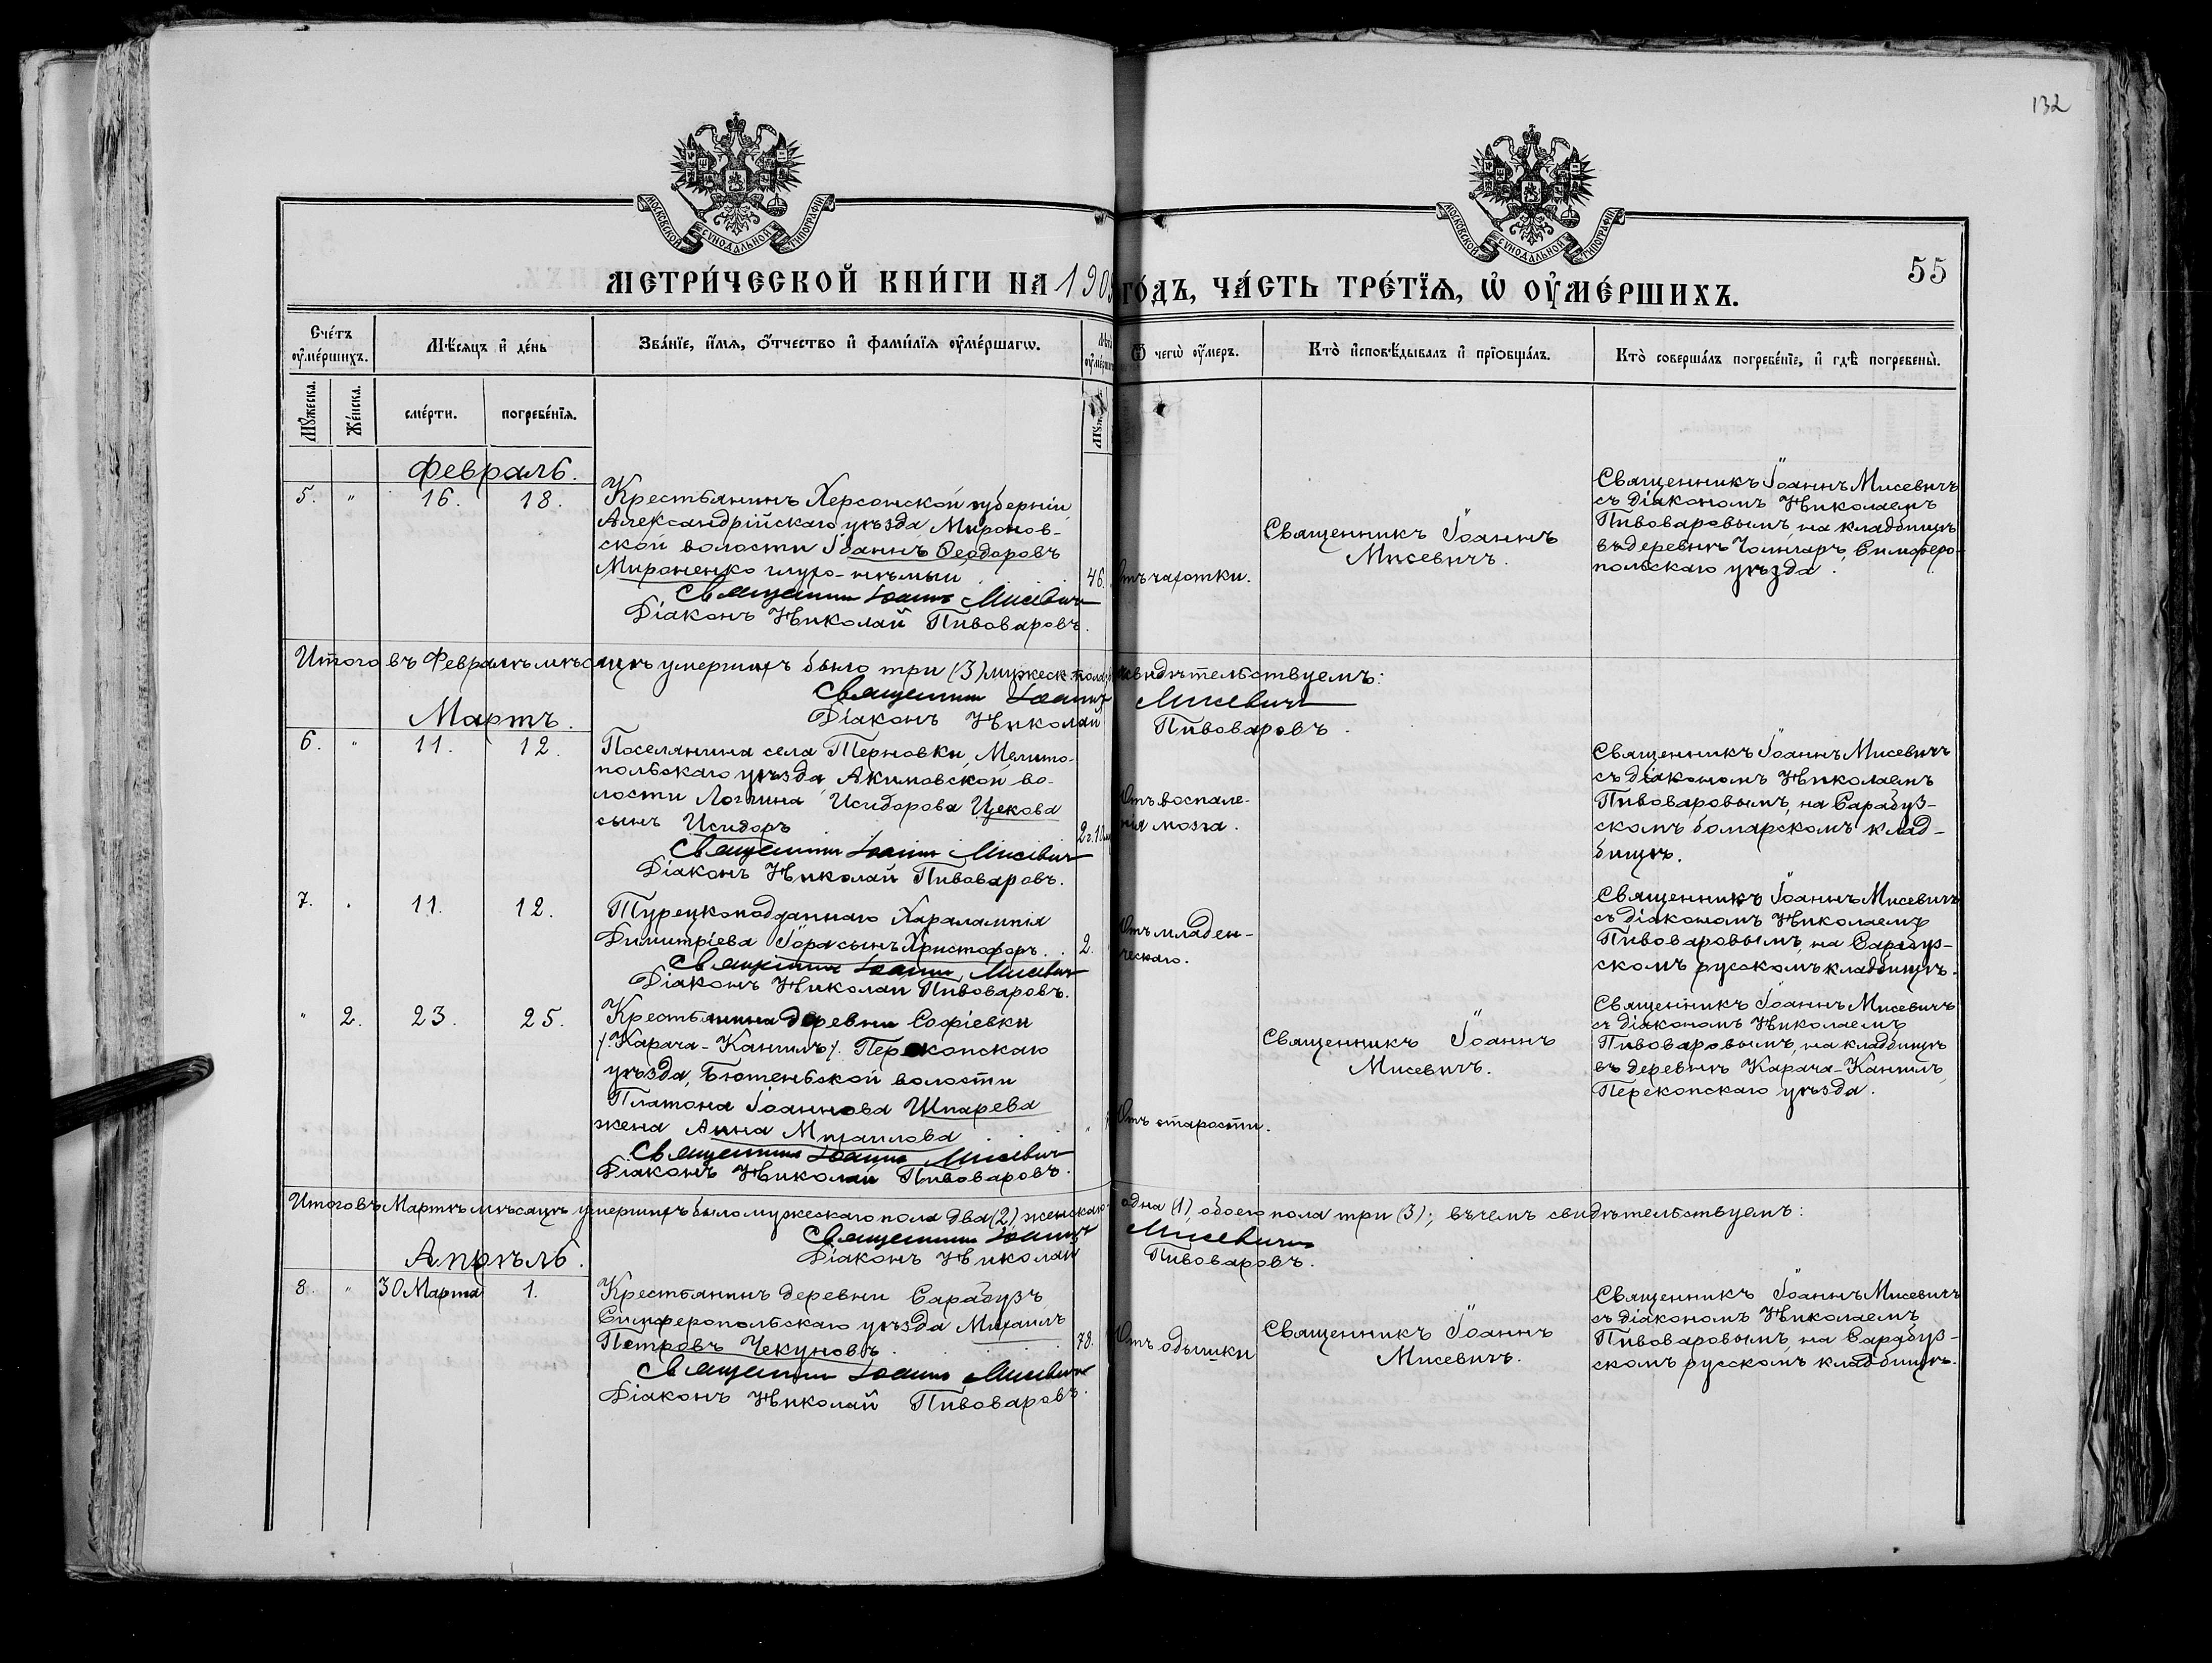 132
МОСКОВСКОЙ СѴНОДАЛЬНОЙ ТИПОГРАФІИ
МОСКОВСКОЙ СѴНОДАЛЬНОЙ ТИПОГРАФІИ
МЕТРИ́ЧЕСКОЙ КНИ́ГИ НА 190
ГО́ДЪ, ЧА́СТЬ ТРЕ́ТЇѦ, Ѡ҆ ОУ҆МЕ́РШИХЪ.
55
Сче́тъ оу҆ме́ршихъ.
Мѣ́сѧцъ и҆ де́нь
Зва́нїе, и҆́мѧ, ѻ҆́тчество и҆ фами́лїѧ оу҆ме́ршагѡ.
Ѿ чегѡ̀ оу҆́меръ.
Кто̀ и҆сповѣ́дывалъ и҆ прїѡбща́лъ.
Кто̀ соверша́лъ погребе́нїе, и҆ гдѣ̀ погребены̀.
Мꙋ́жеска.
Же́нска.
сме́рти.
погребе́нїѧ.
Февраль.
5. " 16. 18.
Крестьянинъ Херсонской губерніи,
Александрійскаго уѣзда, Миронов-
ской волости Іоаннъ Ѳеодоровъ
Мироненко глухо-нѣмый
46.
Священникъ Іоаннъ Мисевичъ
Діаконъ Николай Пивоваровъ.
Отъ чахотки.
Священникъ Іоаннъ
Мисевичъ.
Священникъ Іоаннъ Мисевичъ
съ діакономъ Николаемъ
Пивоваровымъ, на кладбищѣ
въ деревнѣ Чонгаръ, Симферо-
польскаго уѣзда.
Итого въ Февралѣ мѣсяцѣ умершихъ было три (3) мужеск. пола,
свидѣтельствуемъ:
Священникъ Іоаннъ Мисевичъ
Діаконъ Николай Пивоваровъ.
Мартъ.
6. " 11. 12.
Поселянина села Терновки, Мелито-
польскаго уѣзда, Акимовской во-
лости Логгина Исидорова Цекова
сынъ Исидоръ
2 г. 10
Священникъ Іоаннъ Мисевичъ
Діаконъ Николай Пивоваровъ.
Отъ воспале-
нія мозга.
Священникъ Іоаннъ Мисевичъ
съ діакономъ Николаемъ
Пивоваровымъ, на Сарабуз-
скомъ болгарскомъ клад-
бищѣ.
7. " 11. 12.
Турецкоподданнаго Харалампія
Димитріева Іора сынъ Христофоръ.
2.
Священникъ Іоаннъ Мисевичъ
Діаконъ Николай Пивоваровъ.
Отъ младен-
ческаго.
Священникъ Іоаннъ Мисевичъ
съ діакономъ Николаемъ
Пивоваровымъ, на Сарабуз-
скомъ русскомъ кладбищѣ.
" 2. 23. 25.
Крестьянина деревни Софіевки
/. Карача-Кангилъ /. Перекопскаго
уѣзда, Бютеньской волости
Платона Іоаннова Шпарева
жена Анна Михаилова
Священникъ Іоаннъ Мисевичъ
Діаконъ Николай Пивоваровъ.
Отъ старости.
Священникъ Іоаннъ
Мисевичъ.
Священникъ Іоаннъ Мисевичъ
съ діакономъ Николаемъ
Пивоваровымъ, на кладбищѣ
въ деревнѣ Карача-Кангилъ,
Перекопскаго уѣзда.
Итого въ Мартѣ мѣсяцѣ умершихъ было мужескаго пола два (2), женскаго
одна (1), обоего пола три (3); въ чемъ свидѣтельствуемъ:
Священникъ Іоаннъ Мисевичъ
Діаконъ Николай Пивоваровъ.
Апрѣль.
8. " 30 Марта 1.
Крестьянинъ деревни Сарабузъ,
Симферопольскаго уѣзда Михаилъ
Петровъ Чекуновъ
78.
Священникъ Іоаннъ Мисевичъ
Діаконъ Николай Пивоваровъ.
Отъ одышки
Священникъ Іоаннъ
Мисевичъ.
Священникъ Іоаннъ Мисевичъ
съ діакономъ Николаемъ
Пивоваровымъ, на Сарабуз-
скомъ русскомъ кладбищѣ.